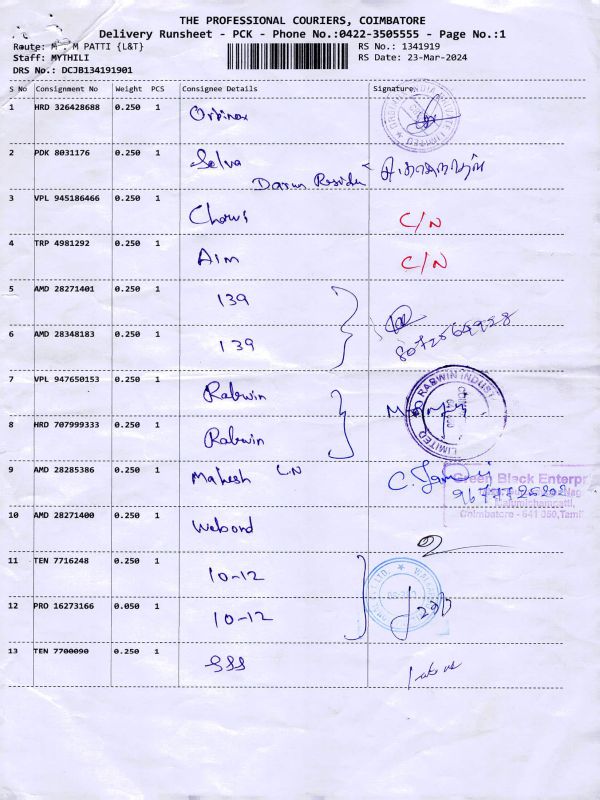 THE PROFESSIONAL COURIERS, COIMBATORE
Delivery Runsheet - PCK - Phone No.:0422-3505555 - Page No.:1
Route: M PATTI {L&T}
RS No.: 1341919
Staff: MYTHILI
RS Date: 23-Mar-2024
DRS No.: DCJB134191901
S No Consignment No Weight PCS Consignee Details Signature
1 HRD 326428688 0.250 1 Orbinox
2 PDK 8031176 0.250 1 Selva
Darun
3 VPL 945186466 0.250 1 C/N
4 TRP 4981292 0.250 1 Aim C/N
5 AMD 28271401 0.250 1 139
6 AMD 28348183 0.250 1 139
7 VPL 947650153 0.250 1 Rabwin
RABWIN INDUST
LIMITED
8 HRD 707999333 0.250 1 Rabwin
9 AMD 28285386 0.250 1 Mahesh C.
Green Black Enterpr
Coimbatore - 641 050, Tamil
10 AMD 28271400 0.250 1 Webond
11 TEN 7716248 0.250 1 10-12
12 PRO 16273166 0.050 1 10-12
13 TEN 7700090 0.250 1 SSS